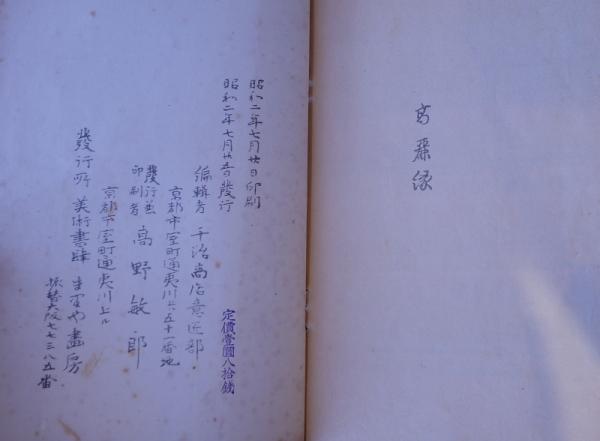 高麗縁
昭和二年七月廿日印刷
昭和二年七月廿五日發行
編輯者 千治商店意匠部
京都市室町通夷川上ル五十一番地
發行兼印刷者 高野敏郎
京都市室町通夷川上ル
發行所 美術書肆 書房
振替大阪七七三八五番
定價壹圓八拾錢